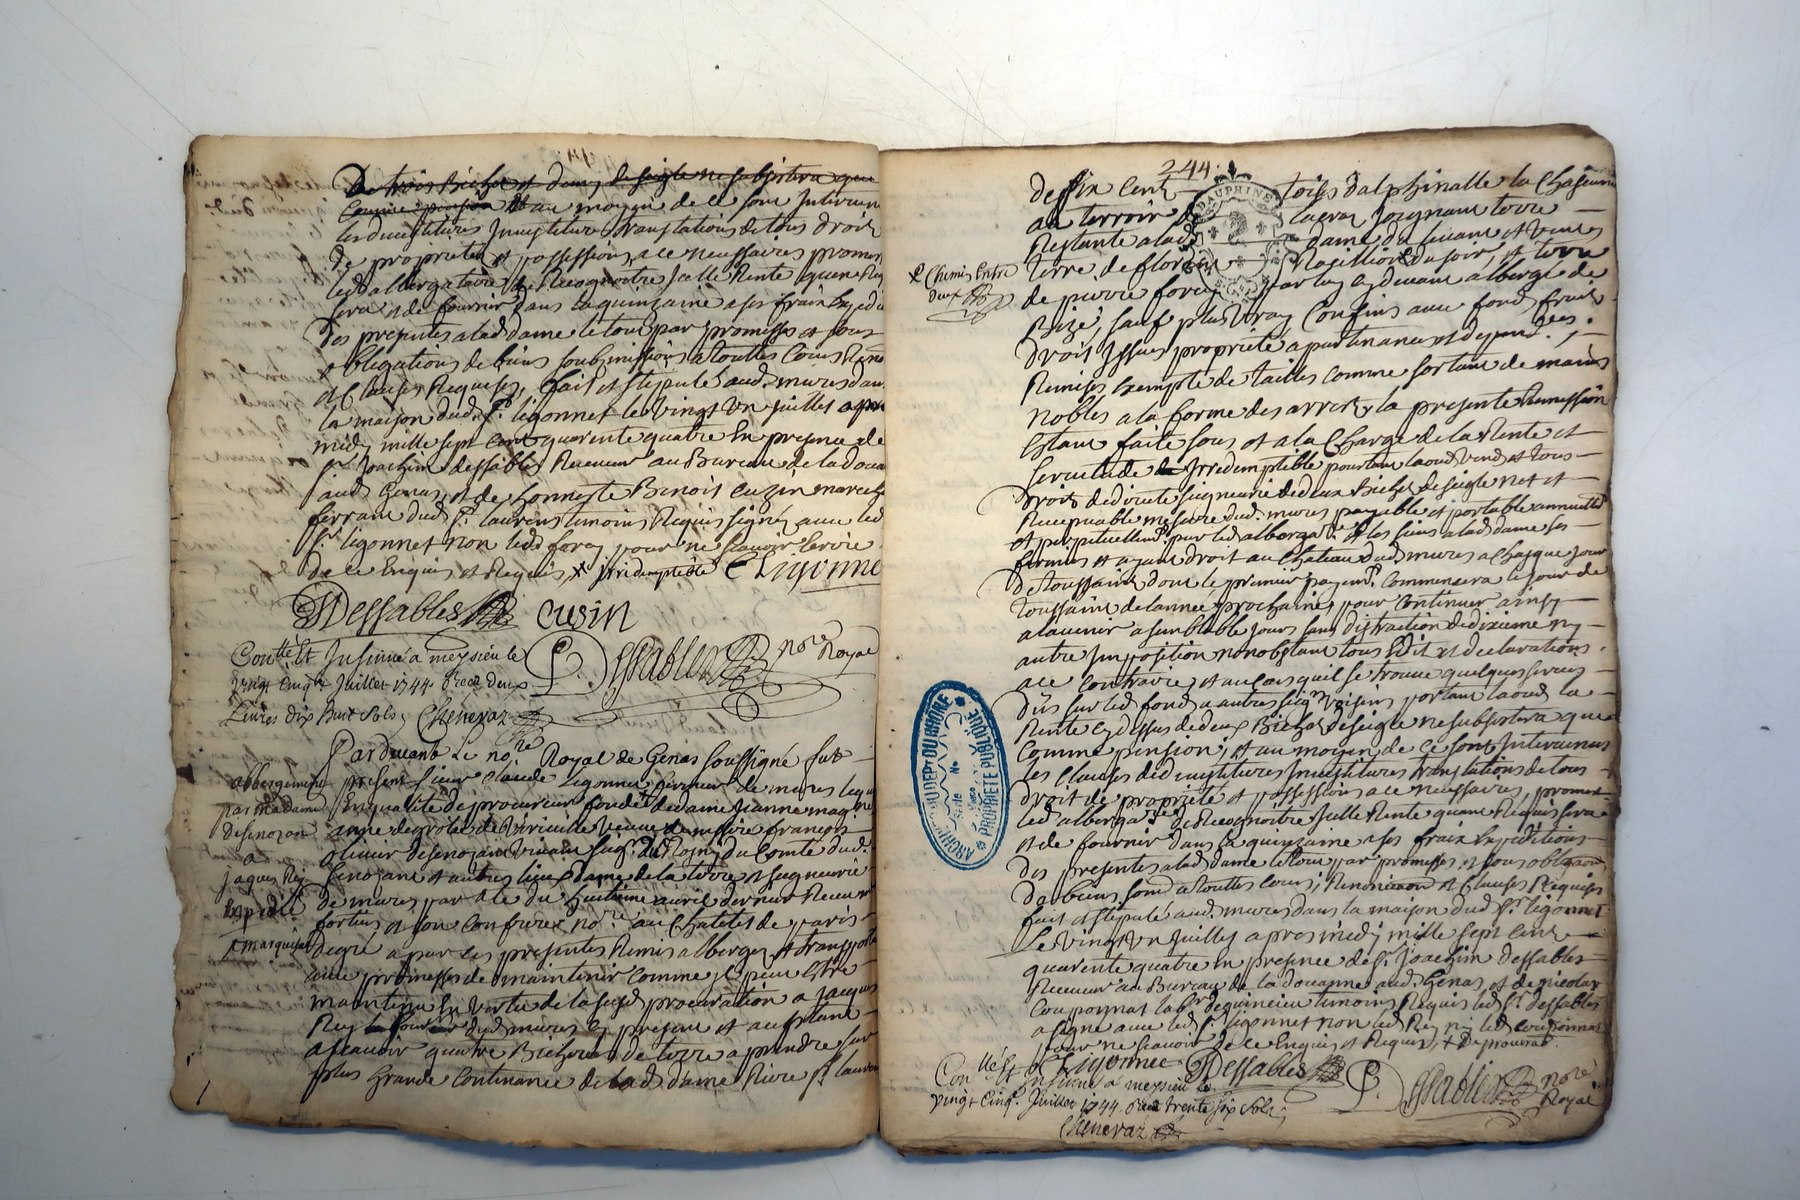 De trois Bichets et demy de seigle ne subsistera que
comme pension et au moyen de ce sont Intervenu
les devestitures Investitures translations de tous droits
de proprietés et possessions a ce necessaires promet
led albergataire de Recognoitre Jcelle Rente quand Req
sera et de fournir dans la quinzaine a ses fraix Expedi
des presentes a lad dame le tout par promesses et sous
obligations de biens soubmissions a touttes Cours Renon
et Clauses Requises, fait et stipulé aud. mures dans
la maison dud. Sr. ligonnet le vingt un juillet apres
midy mille sept cent quarente quatre En presence de
Sr. Joachim dessables Receveur au Bureau de la doua
aud Genas, et de honneste Benoit cuzin marechal
ferrant dud St. laurens temoins Requis signés avec led
Sr. ligonnet non led forey pour ne scavoir Ecrire
de ce Enquis et Requis, x jrridemptible Liyonne
Dessables cusin
Contllé et Insinué a meysieu le P. Dessables nore Royal
vingt cinq Juillet 1744. Receu deux
Livres dix huit sols, Cheneraz
Pardevant Le nore Royal de Genas soussigné fut
abbergement present sieur claude Ligonnet fermier de mures
par madame En qualité de procureur fondé de dame Jeanne mag
de senozan anne de grolée de viriville veuve de messire françois
a olivier de senozan vivant seigr. de Rosny du Comté dud.
jaques Rey senozan et autres lieux dame de la terre et seigneurie
Expedié de mures par acte du huitieme avril dernier Receu
x marquise fortier et son confrere nores au Chatelet de paris
Degré a par les presentes Remis alberger et transporté
avec promesses de maintenir comme jl peut Estre
maintenu En vertu de la susd procuration a jacques
Rey dud mures cy present et acceptant
a scavoir quatre Bicherés de terre a prendre sur
plus Grande contenance de lad dame Riere St. laurens
244.
de six cent toises dalphinalle la chascune
DAUPHINÉ
au terroir de joignant terre
Restante a lad dame du levant et vent
x Chemin Entre
deux
terre de florent Rozillion du soir, et terre
de pierre forey par luy cy devant albergé de
Bize, sauf plus vray confins avec fond fruits
droit Issues proprieté apartenances et dependces.
Remises Exempte de tailles comme sortant de mains
nobles a la forme des arrets, la presente Remission
Etant faite sous et a la Charge de la Rente et
servitude Irredemptible portant laods vends et tous
droits de directe seigneurie de deux Bichets de seigle net et
Recepvable mesure dud. mures payable et portable annuellt
et perpetuellemt. par led albergatre. et les siens a lad dame ses
fermiers et ayant droit au Chateau dud mures a chasque jour
de toussaint dont le premier payemt. commencera le jour de
toussaint de l'année prochaine, pour continuer ainsy
a lavenir a semblable jour sans distraction de dixieme ny
autre Imposition nonobstant tous Edit et declarations
a ce contraire, et au cas qu'il se trouve quelques servis
dus sur led fond a autres seigrs. voisins portant laods la
Rente cy dessus de deux Bichets de seigle ne subsistera que
comme pension; et au moyen de ce sont Intervenus
les clauses de devestitures Investitures translations de tous
droit de proprieté et possessions a ce necessaires, promet
led albergatre. de Recognoitre Jcelle Rente quand Requis sera
et de fournir dans la quinzaine a ses fraix Expeditions
des presentes a lad dame le tout par promesses, et sous obligaon
de biens, soumd a touttes cours, Renonciaon et clauses Requises
fait et stipulé aud. mures dans la maison dud Sr. ligonnet
Le vingt un juillet apres midy mille sept cent
quarente quatre En presence de Sr. Joachim dessables
Receveur au Bureau de la douanne aud. Genas, et de nicolas
couponnat labr. de quincieu temoins Requis led Sr. dessables
a signé avec led Sr. ligonnet non led Rey ny led couponnat
pour ne scavoir de ce Enquis et Requis,
Liyonne Dessables P. Dessables nore Royal
Contllé et Insinué a meysieu le
vingt cinq. Juillet 1744. Receu trente six sols;
Cheneraz
ARCHIVES DU DEPT DU RHONE
PROPRIETE PUBLIQUE